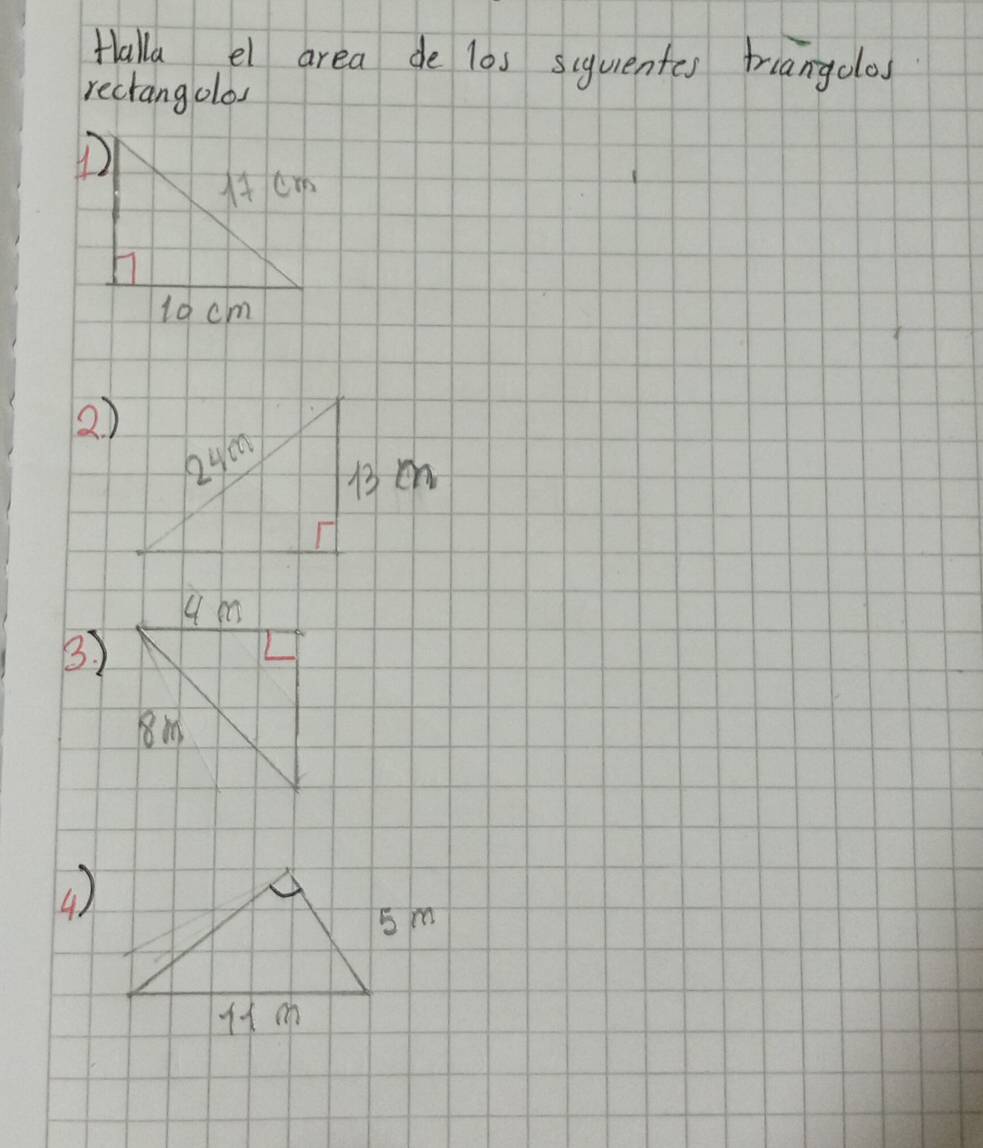 Halla el area de los siguientes triangulos
rectangulos
1)
17 cm
10 cm
2.)
24 m
13 m
4 m
3.)
8 m
4)
5 m
11 m